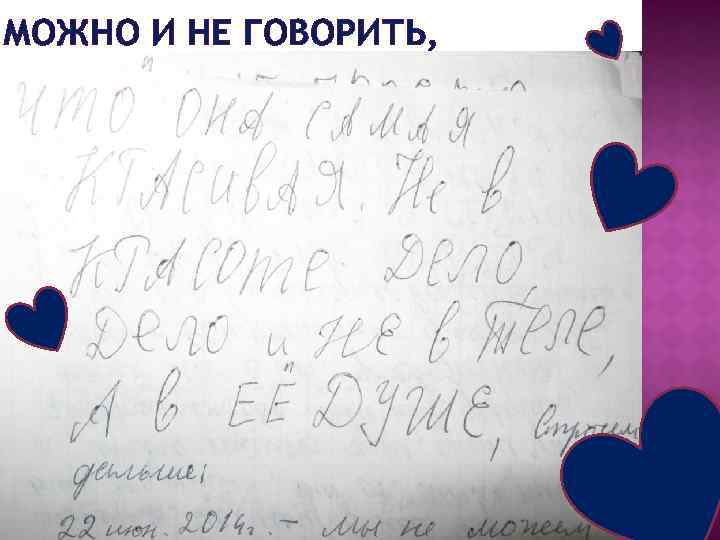 МОЖНО И НЕ ГОВОРИТЬ,
ЧТО ОНА САМАЯ
КРАСИВАЯ. Не в
КРАСОТЕ ДЕЛО,
ДЕЛО и НЕ в ТЕЛЕ,
А в ЕЁ ДУШЕ,
дальше:
22 июн. 2014г. – Мы не можем